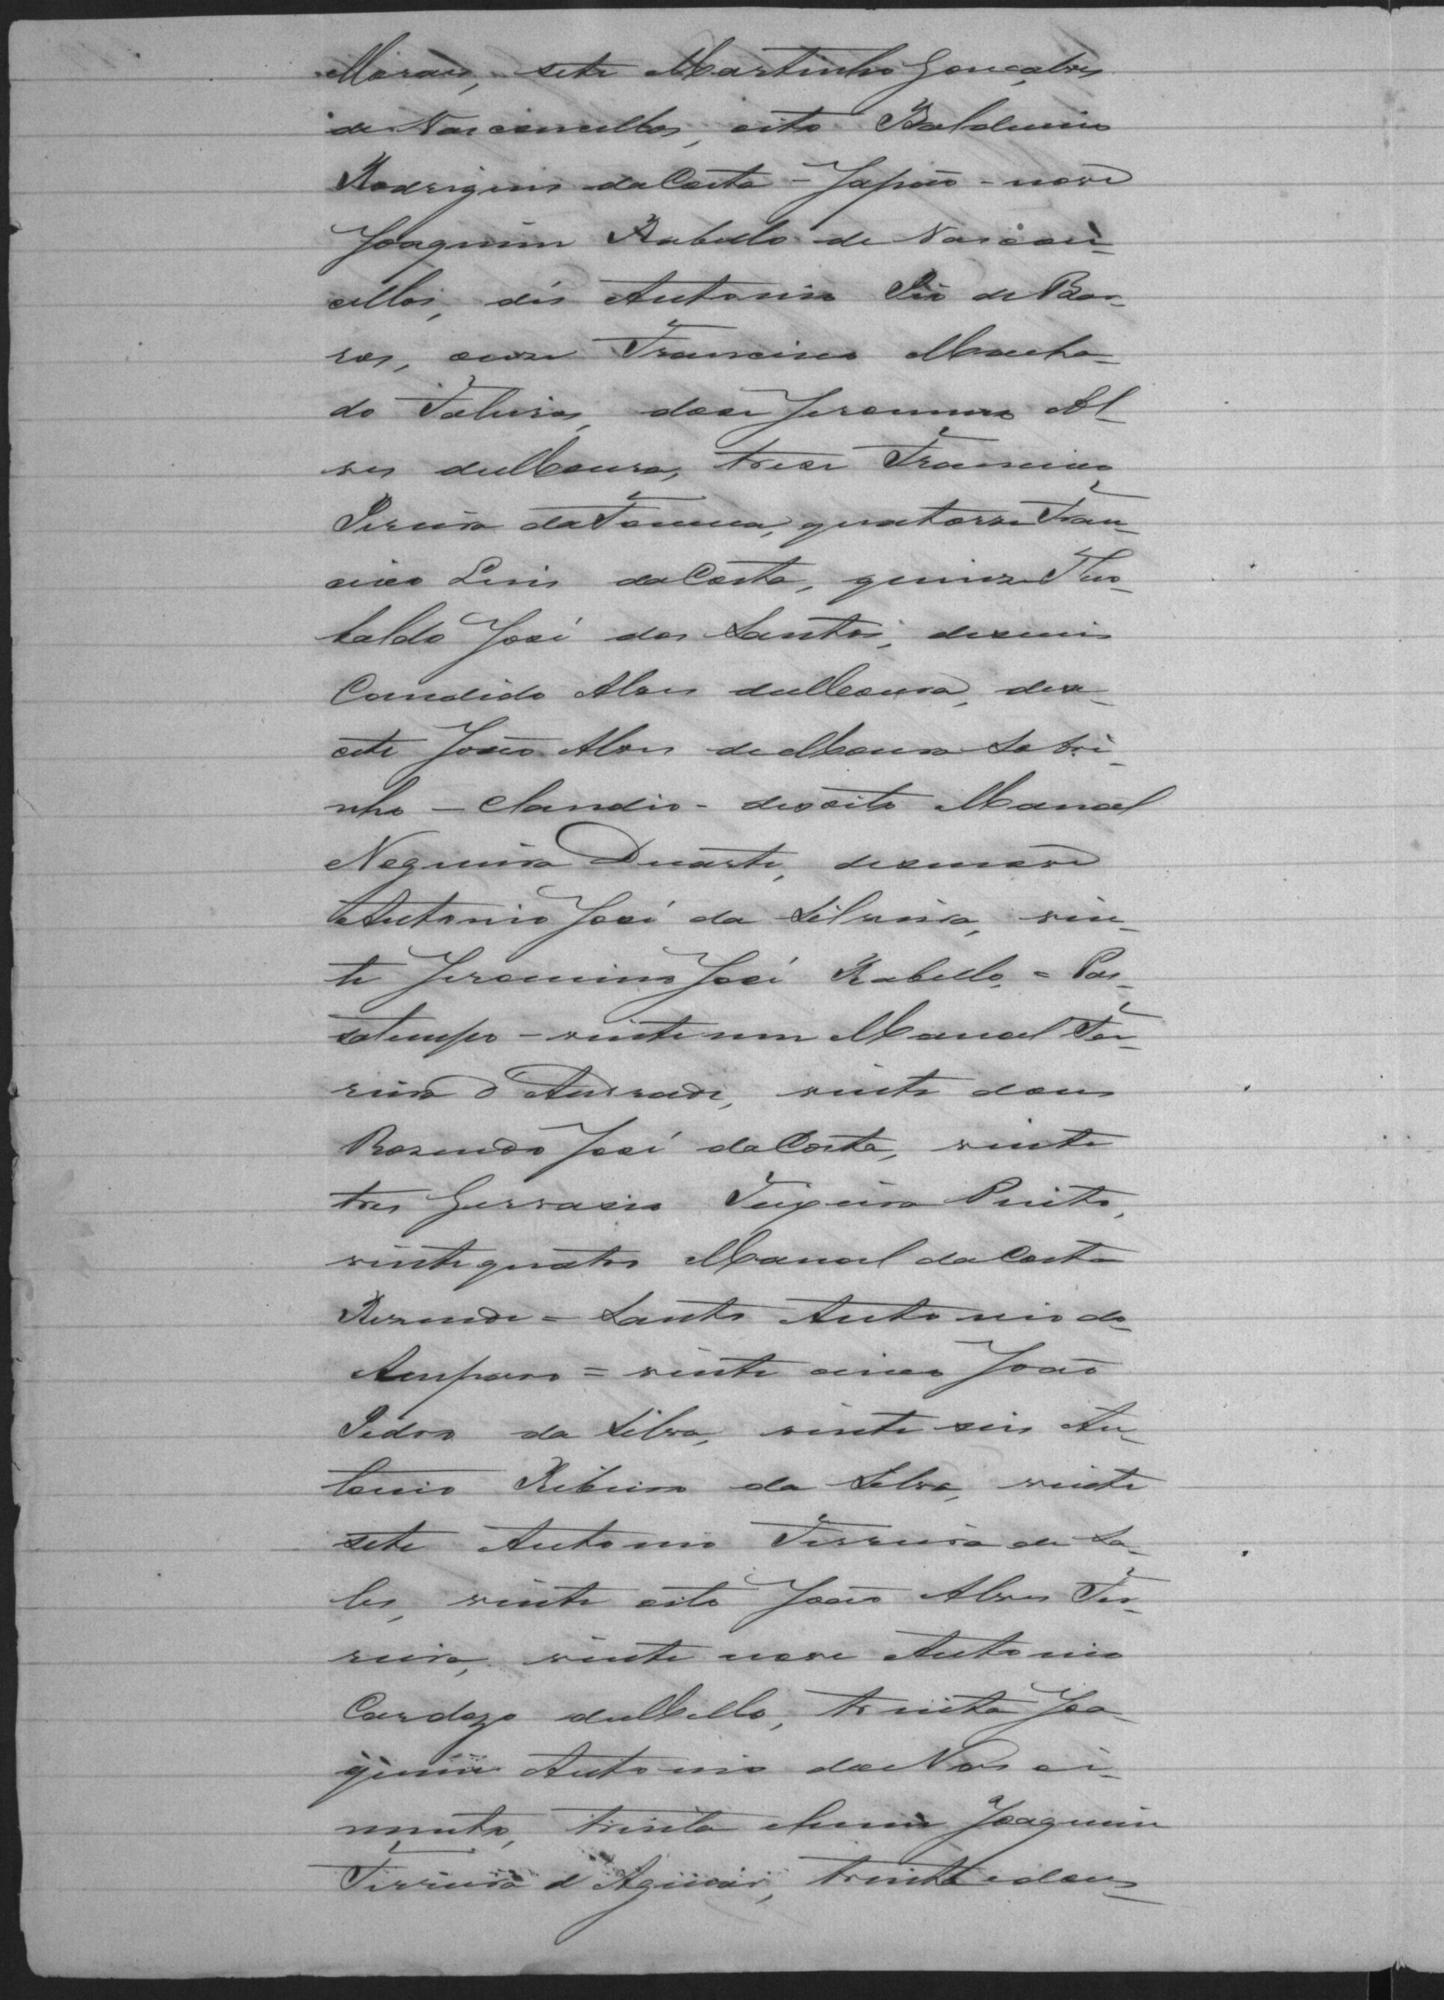 Moraes, sete Martinho Gonçalves
de Vasconcellos, oito Balduino
Rodrigues da Costa - Japão - nove
Joaquim Rabello de Vascon-
cellos, dés Antonio Pio de Bar-
ros, onze Francisco Macha-
do Taveira, doze Jeronimo Al-
ves de Moura, treze Francisco
Pereira da Fonseca, quatorze Fran-
cisco Luis da Costa, quinze Theo-
baldo José dos Santos, deseseis
Candido Alves de Moura, dese-
sete João Alves de Moura Sobri-
nho - Claudio - desoito Manoel
Nogueira Duarte, desenove
Antonio José da Silveira, vin-
te Jeronimo José Rabello, = Pas-
satempo - vinte um Manoel Fer-
reira d'Andrade, vinte dous
Rozendo José da Costa, vinte
tres Gervasio Teixeira Pinto,
vinte quatro Manoel da Costa
Rezende = Santo Antonio do
Amparo = vinte cinco João
Pedro da Silva, vinte seis An-
tonio Ribeiro da Silva, vinte
sete Antonio Ferreira de Sa-
les, vinte oito João Alves Fer-
reira, vinte nove Antonio
Cardozo de Mello, trinta Joa-
quim Antonio do Nasci-
mento, trinta e hum Joaquim
Ferreira d'Aguiar, trinta e dous